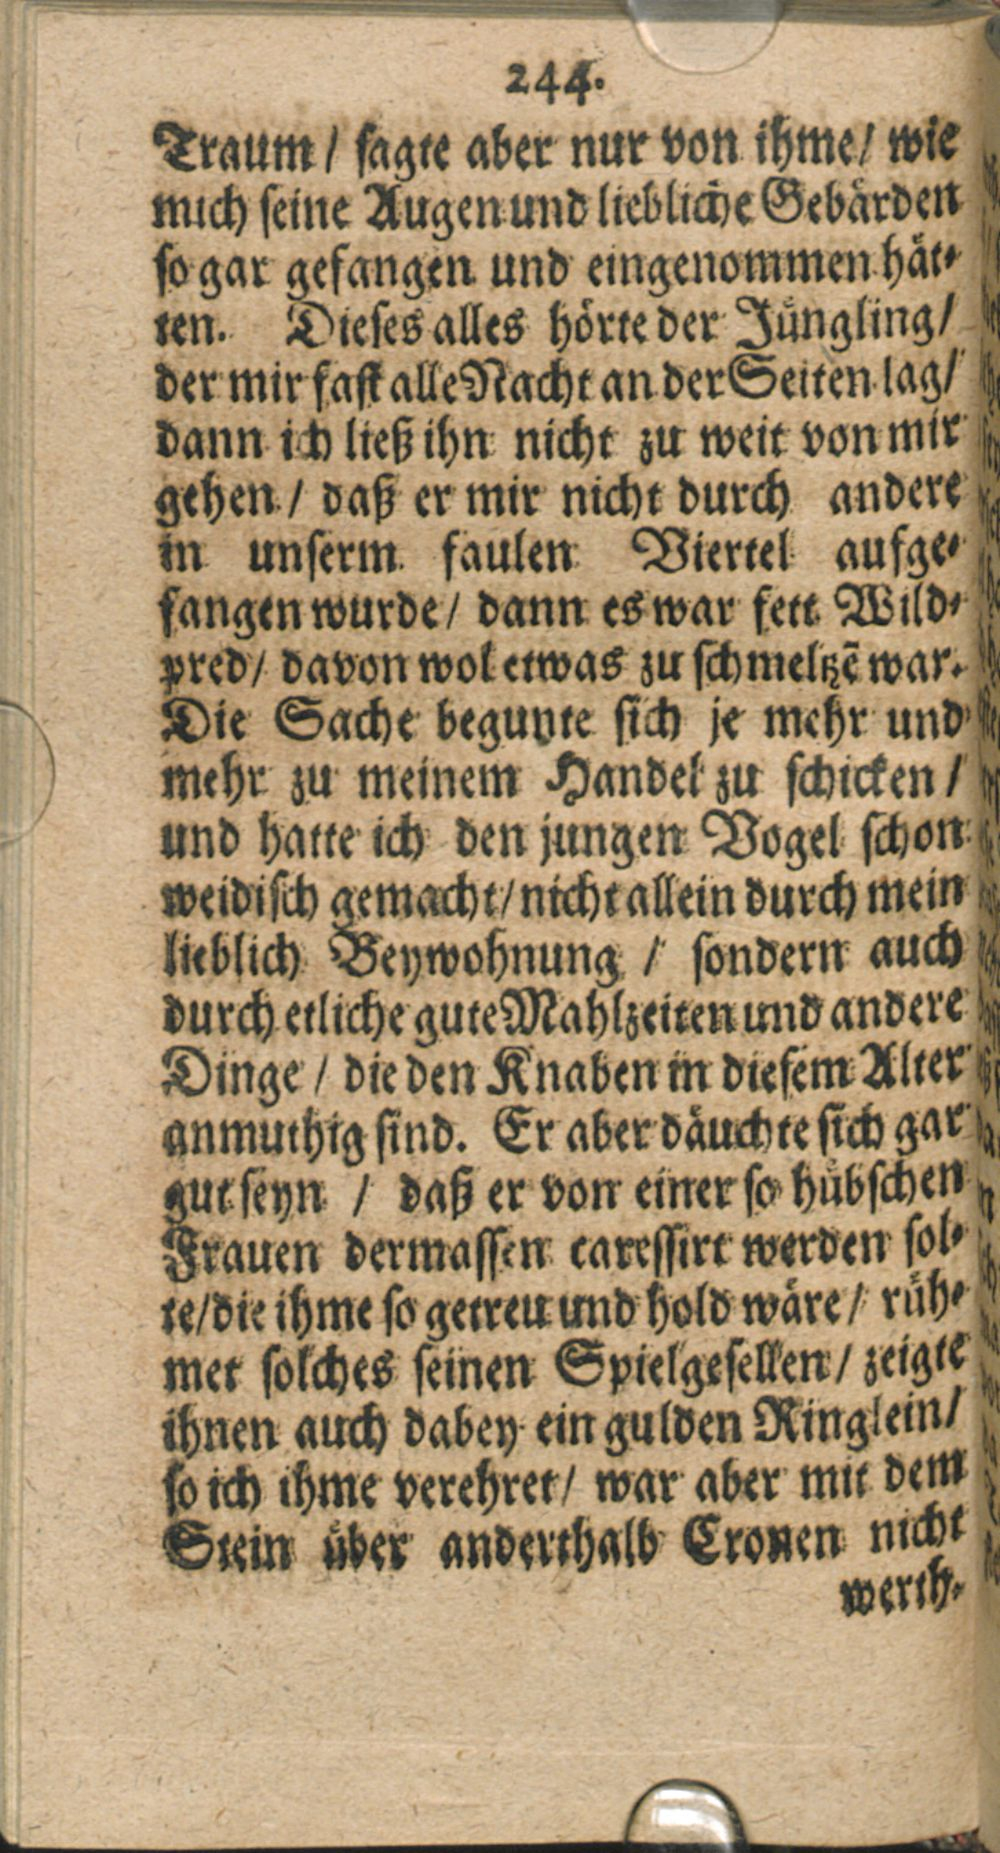 244.
Traum / sagte aber nur von ihme / wie
mich seine Augen und liebliche Gebärden
so gar gefangen und eingenommen hät-
ten. Dieses alles hörte der Jüngling /
der mir fast alle Nacht an der Seiten lag /
dann ich ließ ihn nicht zu weit von mir
gehen / daß er mir nicht durch andere
in unserm faulen Viertel aufge-
fangen wurde / dann es war fett Wild-
pred / davon wol etwas zu schmeltzẽ war.
Die Sache begunte sich je mehr und
mehr zu meinem Handel zu schicken /
und hatte ich den jungen Vogel schon
weidisch gemacht / nicht allein durch mein
lieblich Beywohnung / sondern auch
durch etliche gute Mahlzeiten und andere
Dinge / die den Knaben in diesem Alter
anmuthig sind. Er aber däuchte sich gar
gut seyn / daß er von einer so hübschen
Frauen dermassen caressirt werden sol-
te / die ihme so getreu und hold wäre / rüh-
met solches seinen Spielgesellen / zeigte
ihnen auch dabey ein gulden Ringlein /
so ich ihme verehret / war aber mit dem
Stein über anderthalb Cronen nicht
werth.